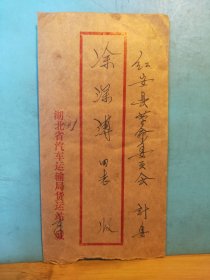 红安县革命委员会 计委
涂深溥 同志 收
湖北省汽车运输局货运